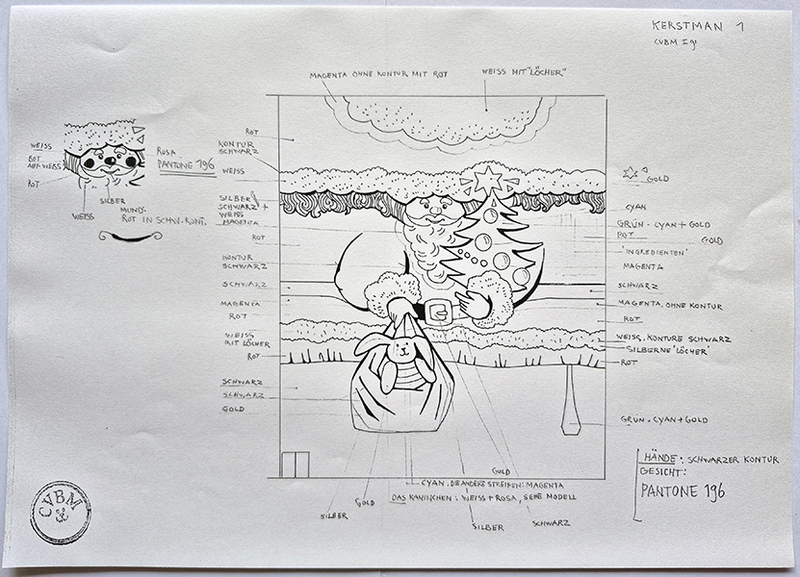 KERSTMAN 1
CVBM I 91
MAGENTA OHNE KONTUR MIT ROT
WEISS MIT "LÖCHER"
WEISS
ROT
AUF WEISS
ROT
ROSA
PANTONE 196
SILBER
WEISS
MUND:
ROT IN SCHW. KONT.
ROT
KONTUR
SCHWARZ
WEISS
SILBER
SCHWARZ +
WEISS
MAGENTA
ROT
KONTUR
SCHWARZ
SCHWARZ
MAGENTA
ROT
WEISS
MIT LÖCHER
ROT
SCHWARZ
SCHWARZ
GOLD
GOLD
CYAN
GRÜN - CYAN + GOLD
ROT
GOLD
'INGREDIENTEN'
MAGENTA
SCHWARZ
MAGENTA. OHNE KONTUR
ROT
WEISS, KONTURE SCHWARZ
SILBERNE 'LÖCHER'
ROT
GRÜN. CYAN + GOLD
HÄNDE: SCHWARZER KONTUR
GESICHT:
PANTONE 196
GOLD
CYAN, DE ANDERE STREIFEN: MAGENTA
DAS KANINCHEN: WEISS + ROSA, SEHE MODELL
GOLD
SILBER
SILBER
SCHWARZ
CVBM